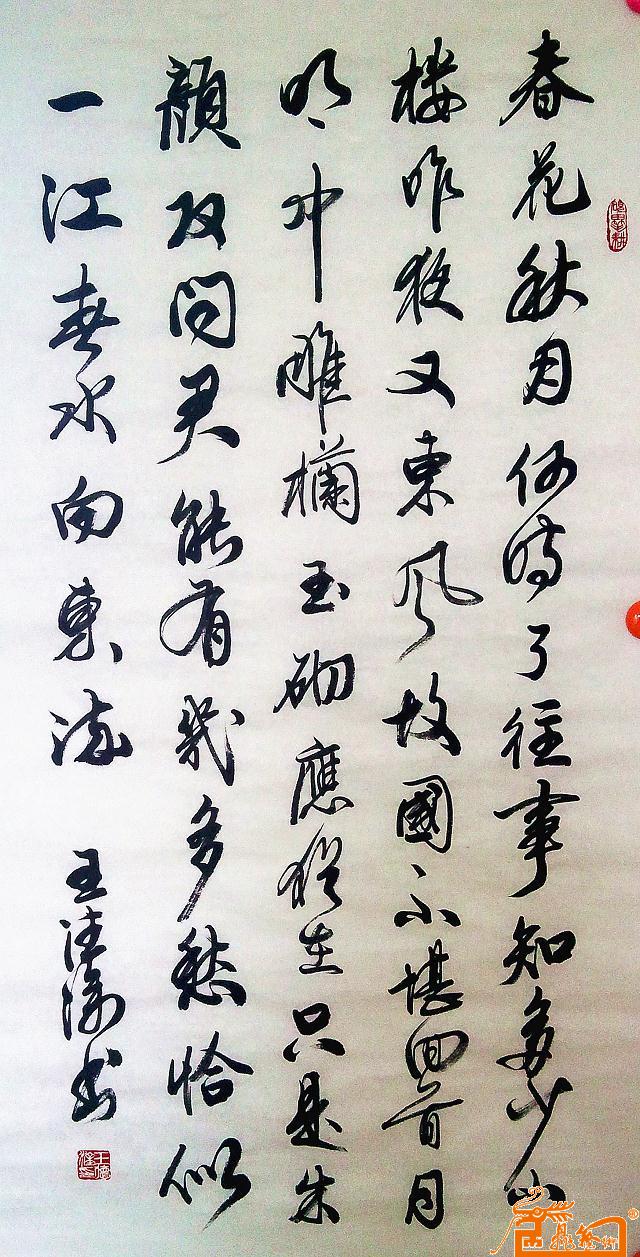 春花秋月何時了往事知多少小
樓昨夜又東風故國不堪回首月
明中雕欄玉砌應猶在只是朱
顏改問君能有幾多愁恰似
一江春水向東流
王 书